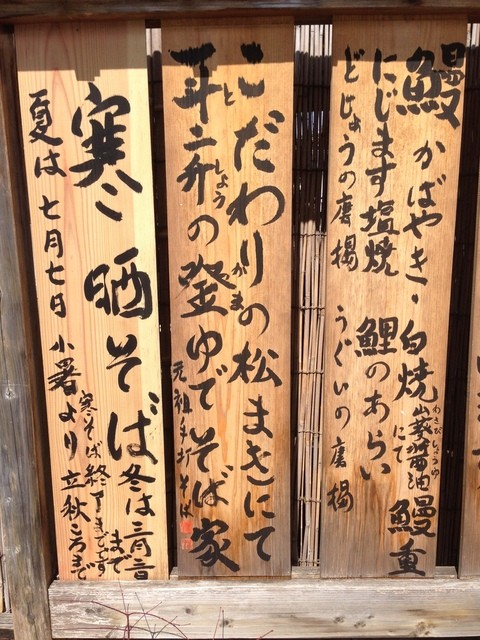 鰻 かばやき・白焼 山葵醤油にて 鰻重
わさび しょうゆ
にじます塩焼 鯉のあらい
どじょうの唐揚 うぐいの唐揚
こだわりの松まきにて
一斗二升の釜ゆでそば家
と しょう かま
元祖手打そば
寒晒そば
冬は二月
まで
夏は七月七日小暑より立秋ころまで
寒そば終了までです